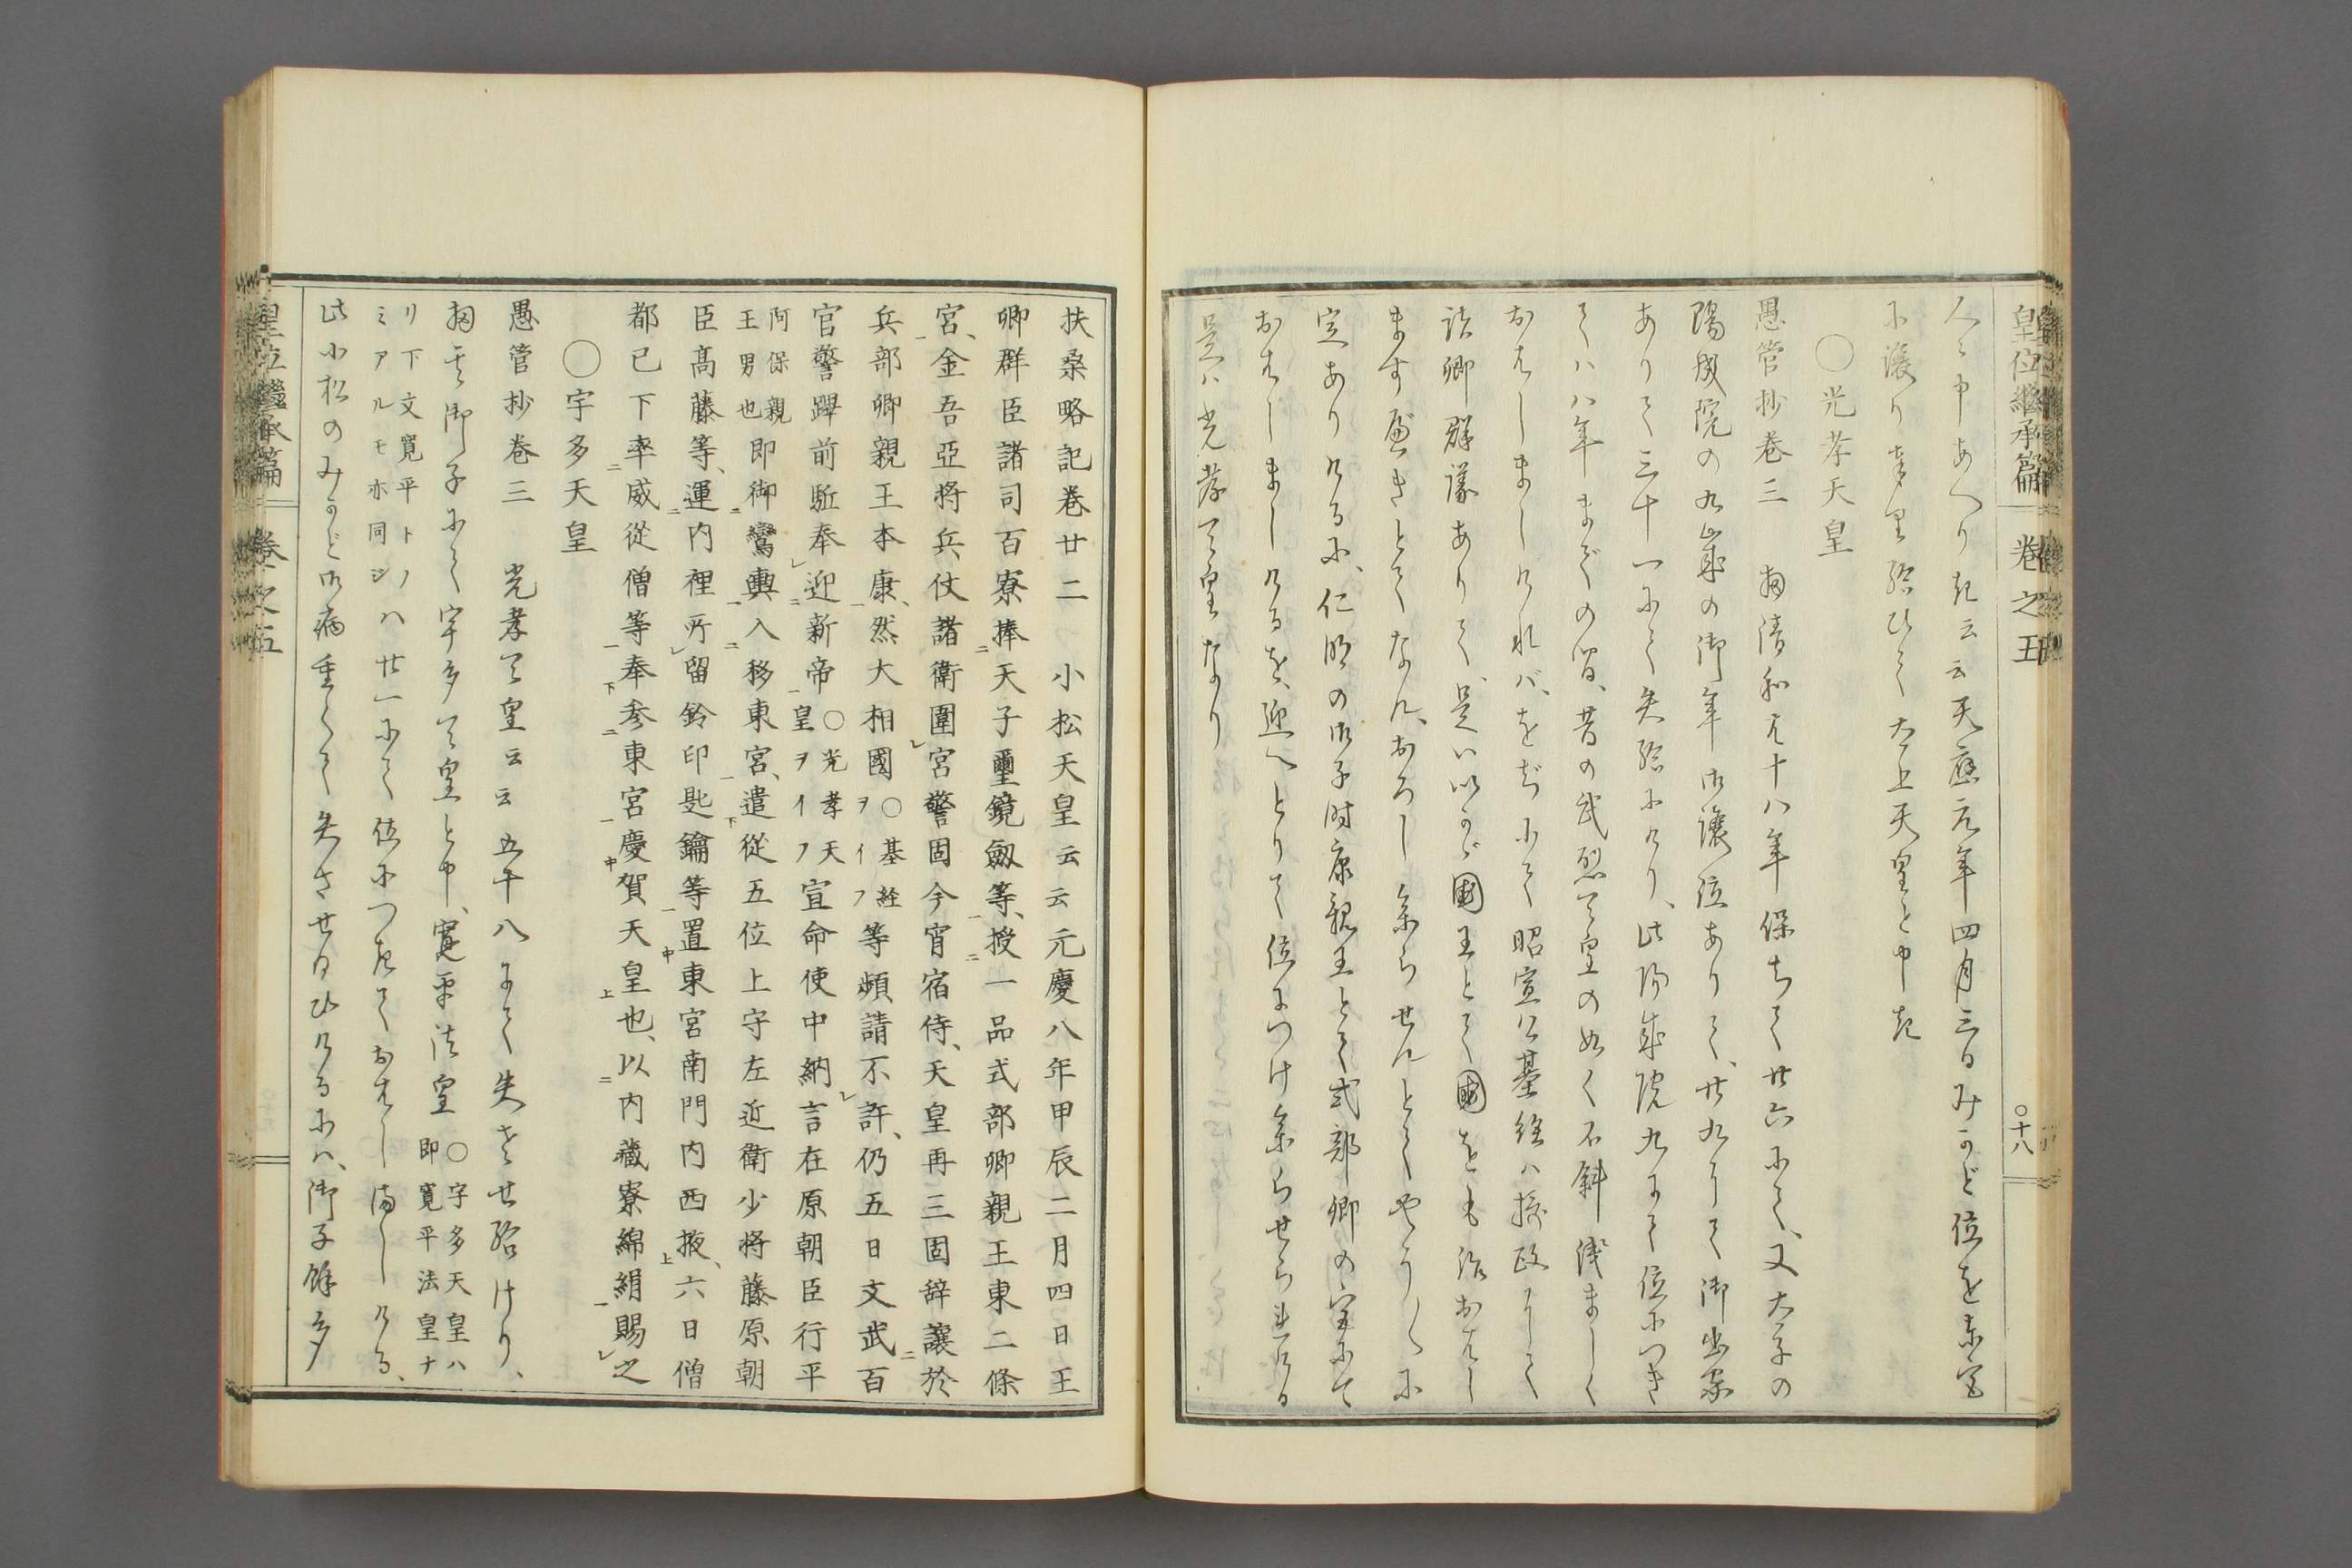 皇位継承篇 卷之五 ○十八
人々申あへり云云天應元年四月三日みかど位を東宮
に讓り奉り給ひて太上天皇と申き
○光孝天皇
愚管抄卷三 扨清和は十八年保ちて廿六にて、又太子の
陽成院の九歳の御年御讓位ありて、廿九にて御出家
ありて三十一にて失給にけり、此陽成院九にて位につき
て八年までの間、昔の武烈天皇の如く不斜淺ましく
おはしましければ、をぢにて昭宣公基經は攝政にして
諸卿群議ありて、是はいかゞ國王とて國をも治おはし
ます應きとてなん、おろし參らせんとてやう〳〵に
定ありけるに、仁明の御子時康親王とて式部卿の宮にて
おはしましけるを、迎へとりて位につけ參らせられける
是は光孝天皇なり
扶桑略記卷廿二 小松天皇云云元慶八年甲辰二月四日王
卿群臣諸司百寮捧天子璽鏡劔等、授一品式部卿親王東二條
宮、金吾亞将兵、仗諸衛圍宮警固今宵宿侍、天皇再三固辞讓於
兵部卿親王本康、然大相國○基経ヲイフ等頻請不許、仍五日文武百
官警蹕前駈奉迎新帝○光孝天皇ヲイフ宣命使中納言在原朝臣行平
阿保親王男也即御鸞輿入移東宮、遣從五位上守左近衛少将藤原朝
臣高藤等、運内裡所留鈴印匙鑰等置東宮南門内西掖、六日僧
都已下率威從僧等奉参東宮慶賀天皇也、以内藏寮綿絹賜之
○宇多天皇
愚管抄卷三 光孝天皇云云五十八にて失させ給けり、
扨其御子にて宇多天皇と申、寛平法皇○宇多天皇ハ即寛平法皇ナ
リ下文寛平トノミアルモ亦同シハ廿一にて位につきておはしましける、
此小松のみかど御病重くて失させ給ひけるには、御子餘多
皇位繼承篇 卷之五